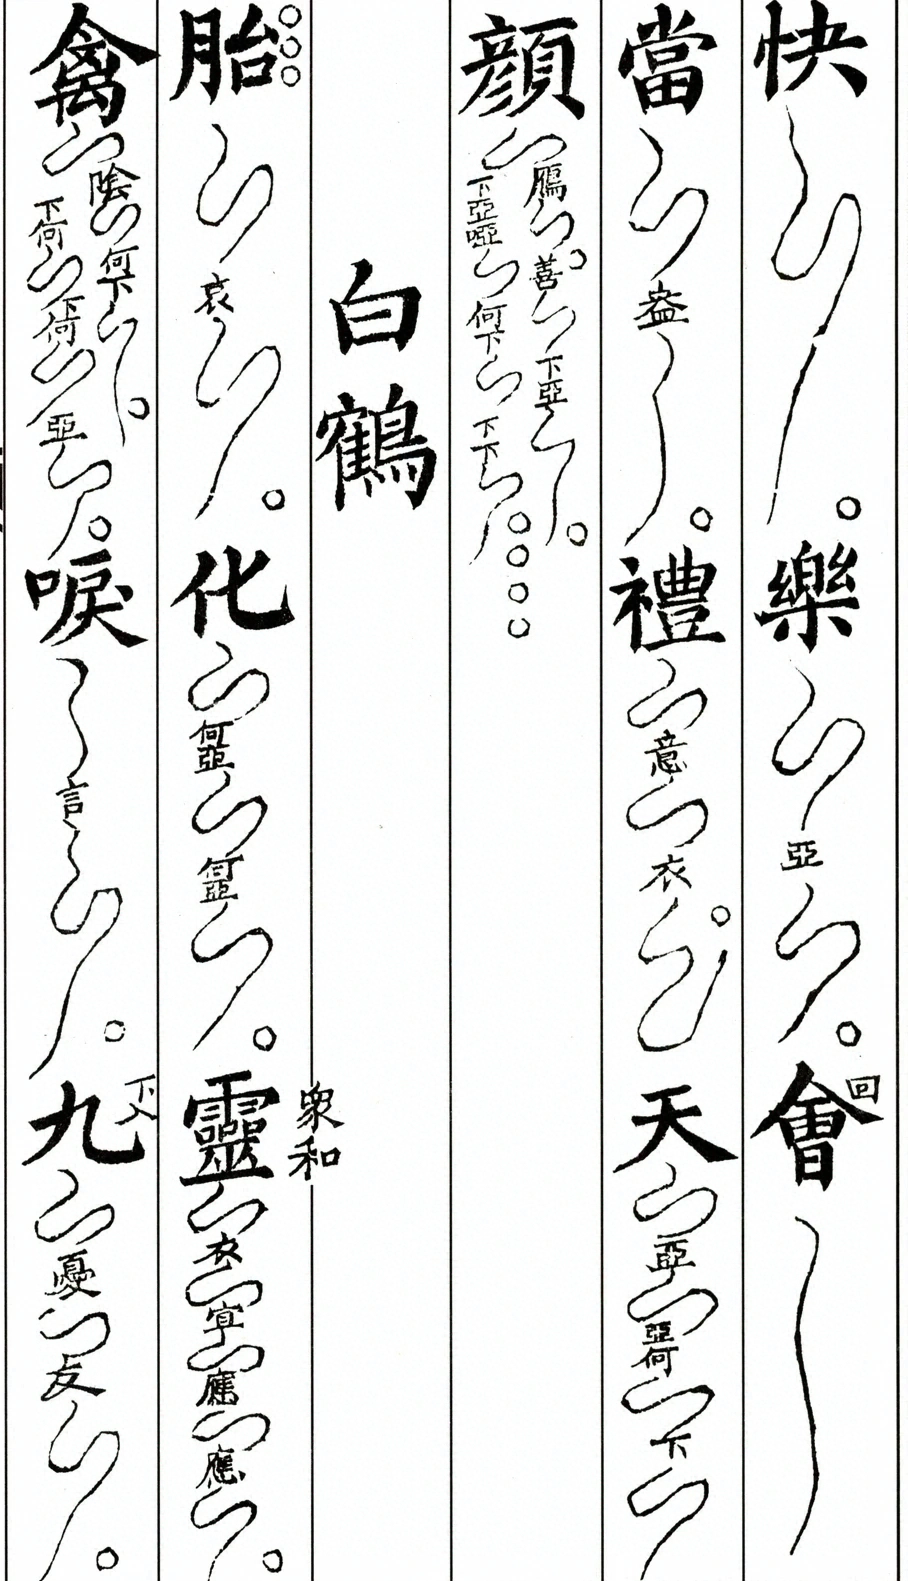 快樂亞會回
當盎禮意衣天亞下亞下亞何下
顔鴈善下亞下亞啞何下下下
白鶴
胎哀化何亞何亞靈衆和衣宜丁應應
禽陰何下下何下何亞唳言九下憂友